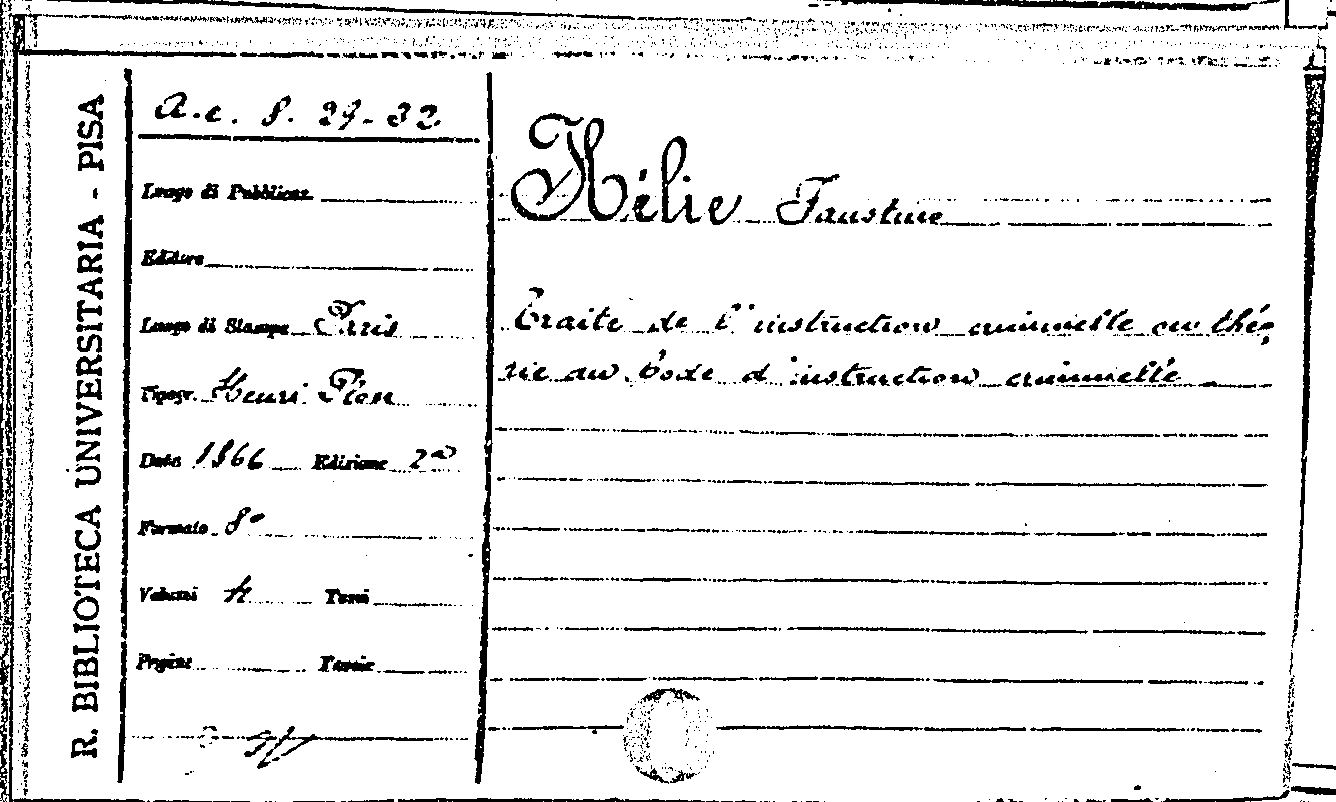 R. BIBLIOTECA UNIVERSITARIA - PISA
A.c. 8. 29-32
Luogo di Pubblicaz.
Editore
Luogo di Stampa Paris
Tipogr. Henri Plon
Data 1866 Edizione 2ª
Formato 8°
Volumi 4 Tomi
Pagine Tavole
Hélie Faustine
Traité de l'instruction criminelle ou théo
rie du Code d'instruction criminelle